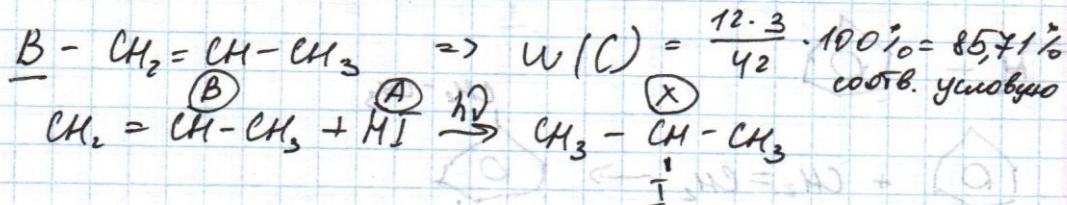 B - CH₂=CH-CH₃ => W(C) = 12·3/42 · 100% = 85,71%
соотв. условию
B A hν X
CH₂ = CH-CH₃ + HI → CH₃ - CH - CH₃
I